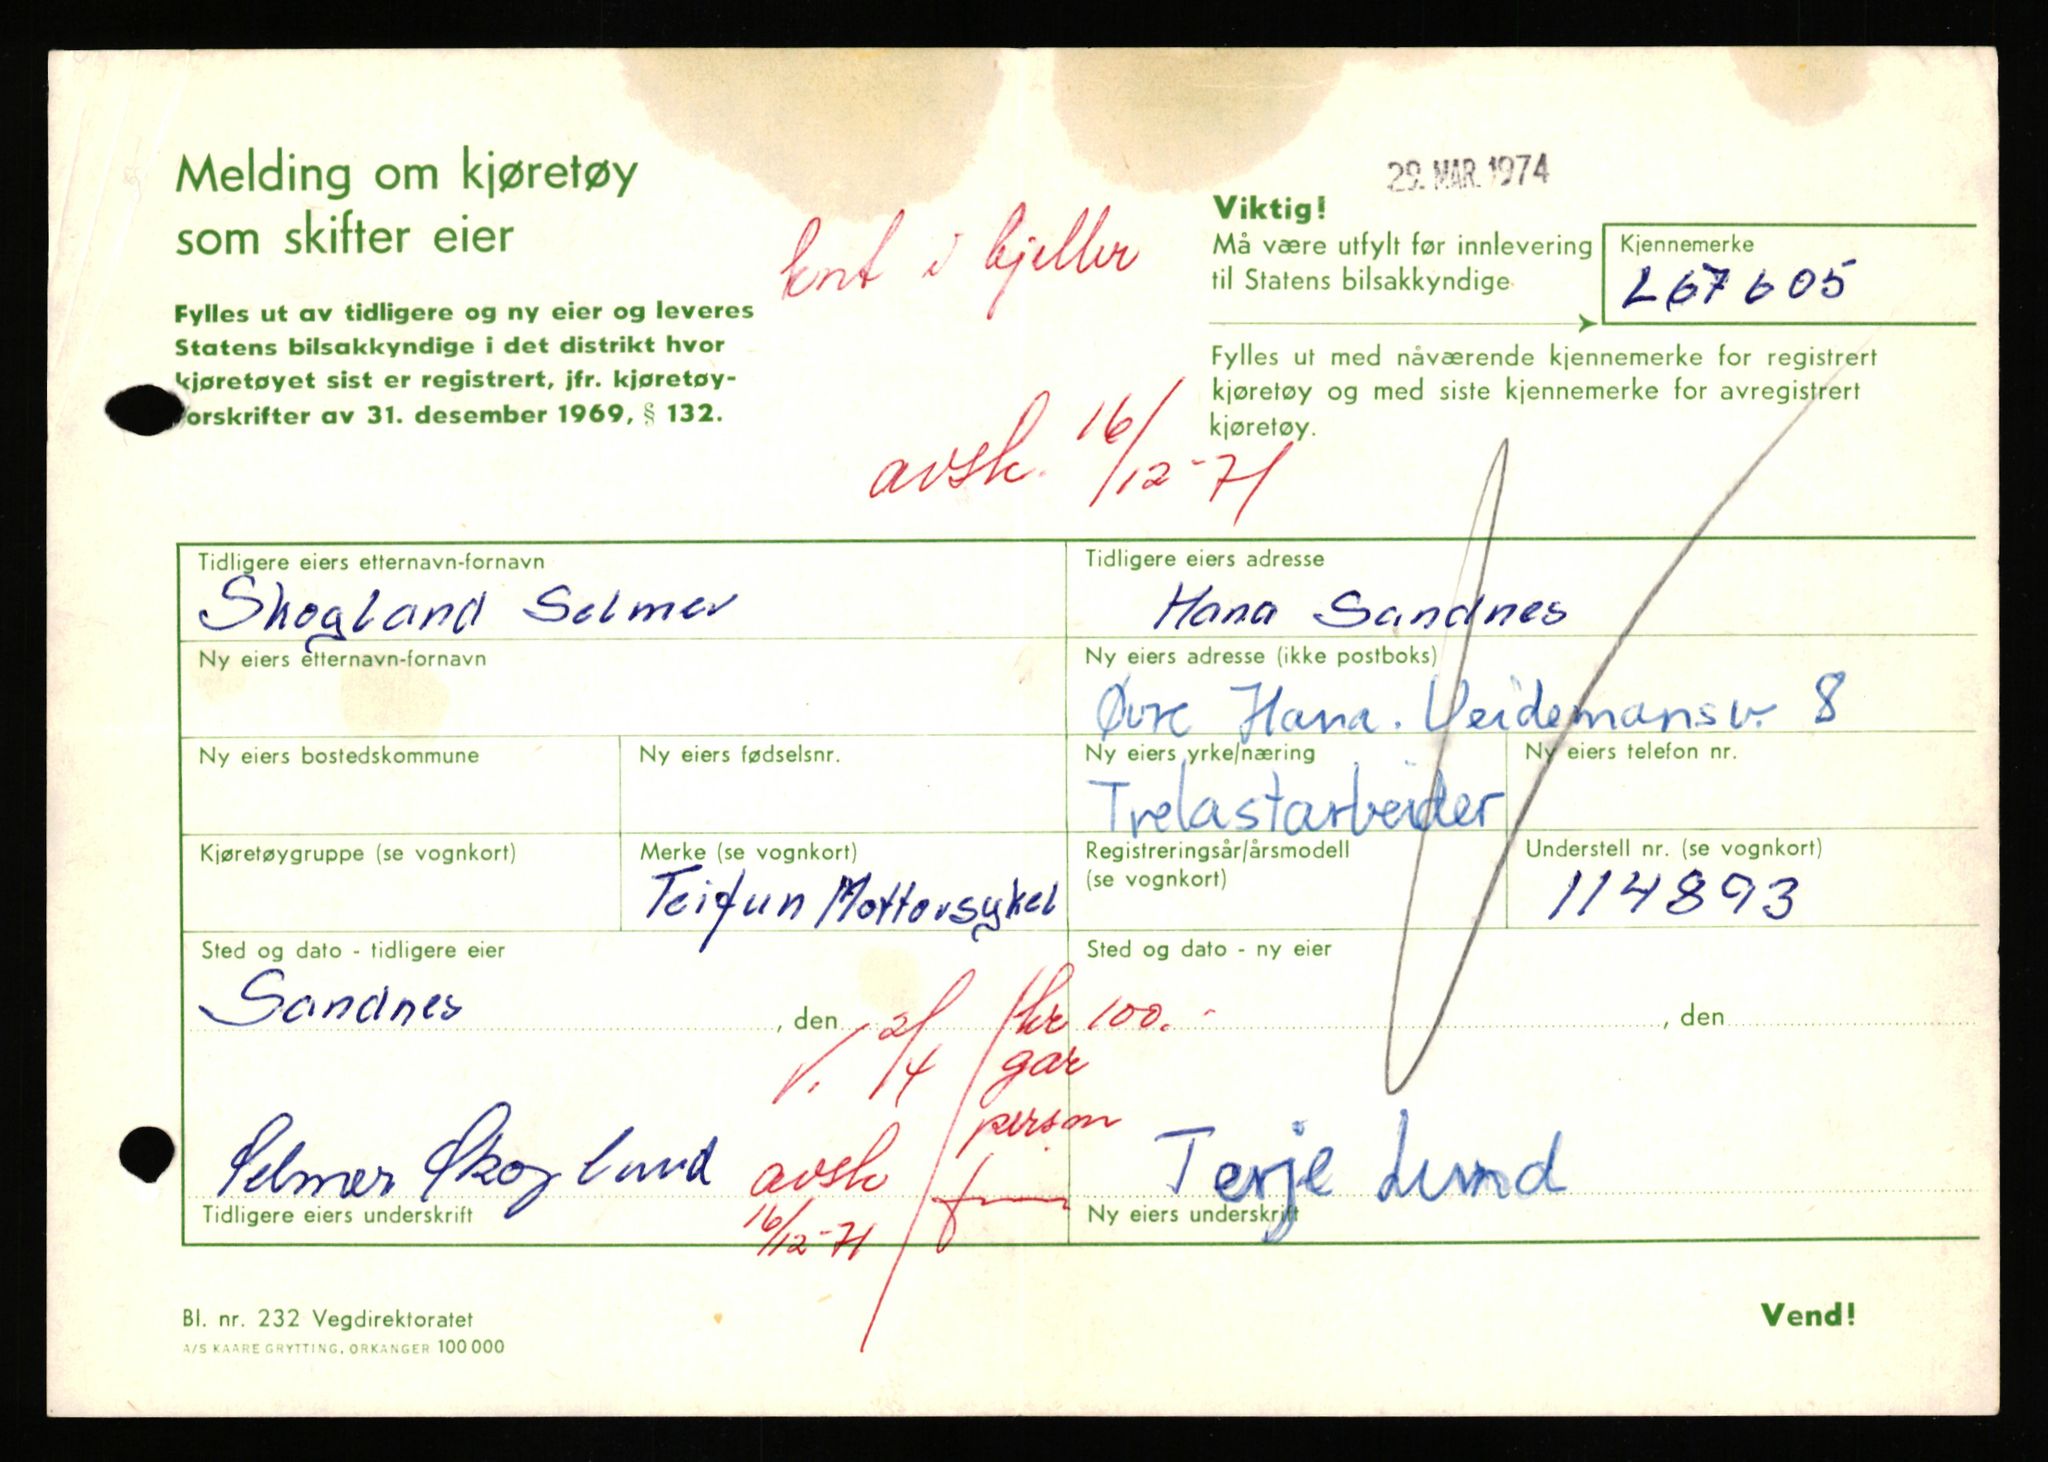 Melding om kjøretøy
som skifter eier
29. MAR. 1974
Viktig!
Må være utfylt før innlevering
til Statens bilsakkyndige
Kjennemerke
L67605
kort i kjeller
Fylles ut av tidligere og ny eier og leveres
Statens bilsakkyndige i det distrikt hvor
kjøretøyet sist er registrert, jfr. kjøretøy-
orskrifter av 31. desember 1969, § 132.
Fylles ut med nåværende kjennemerke for registrert
kjøretøy og med siste kjennemerke for avregistrert
kjøretøy.
avsk. 16/12-71
Tidligere eiers etternavn-fornavn
Skogland Selmer
Tidligere eiers adresse
Hana Sandnes
Ny eiers etternavn-fornavn
Ny eiers adresse (ikke postboks)
Øvre Hana. Veidemansv. 8
Ny eiers bostedskommune
Ny eiers fødselsnr.
Ny eiers yrke/næring
Trelastarbeider
Ny eiers telefon nr.
Kjøretøygruppe (se vognkort)
Merke (se vognkort)
Teifun Mottorsykel
Registreringsår/årsmodell
(se vognkort)
Understell nr. (se vognkort)
114893
Sted og dato - tidligere eier
Sandnes , den
Sted og dato - ny eier
, den
V. 2/4
kr 100.-
gar
person
Selmer Skogland
avsk
16/12-71
Terje Lund
Tidligere eiers underskrift
Ny eiers underskrift
Bl. nr. 232 Vegdirektoratet
A/S KAARE GRYTTING, ORKANGER 100 000
Vend!